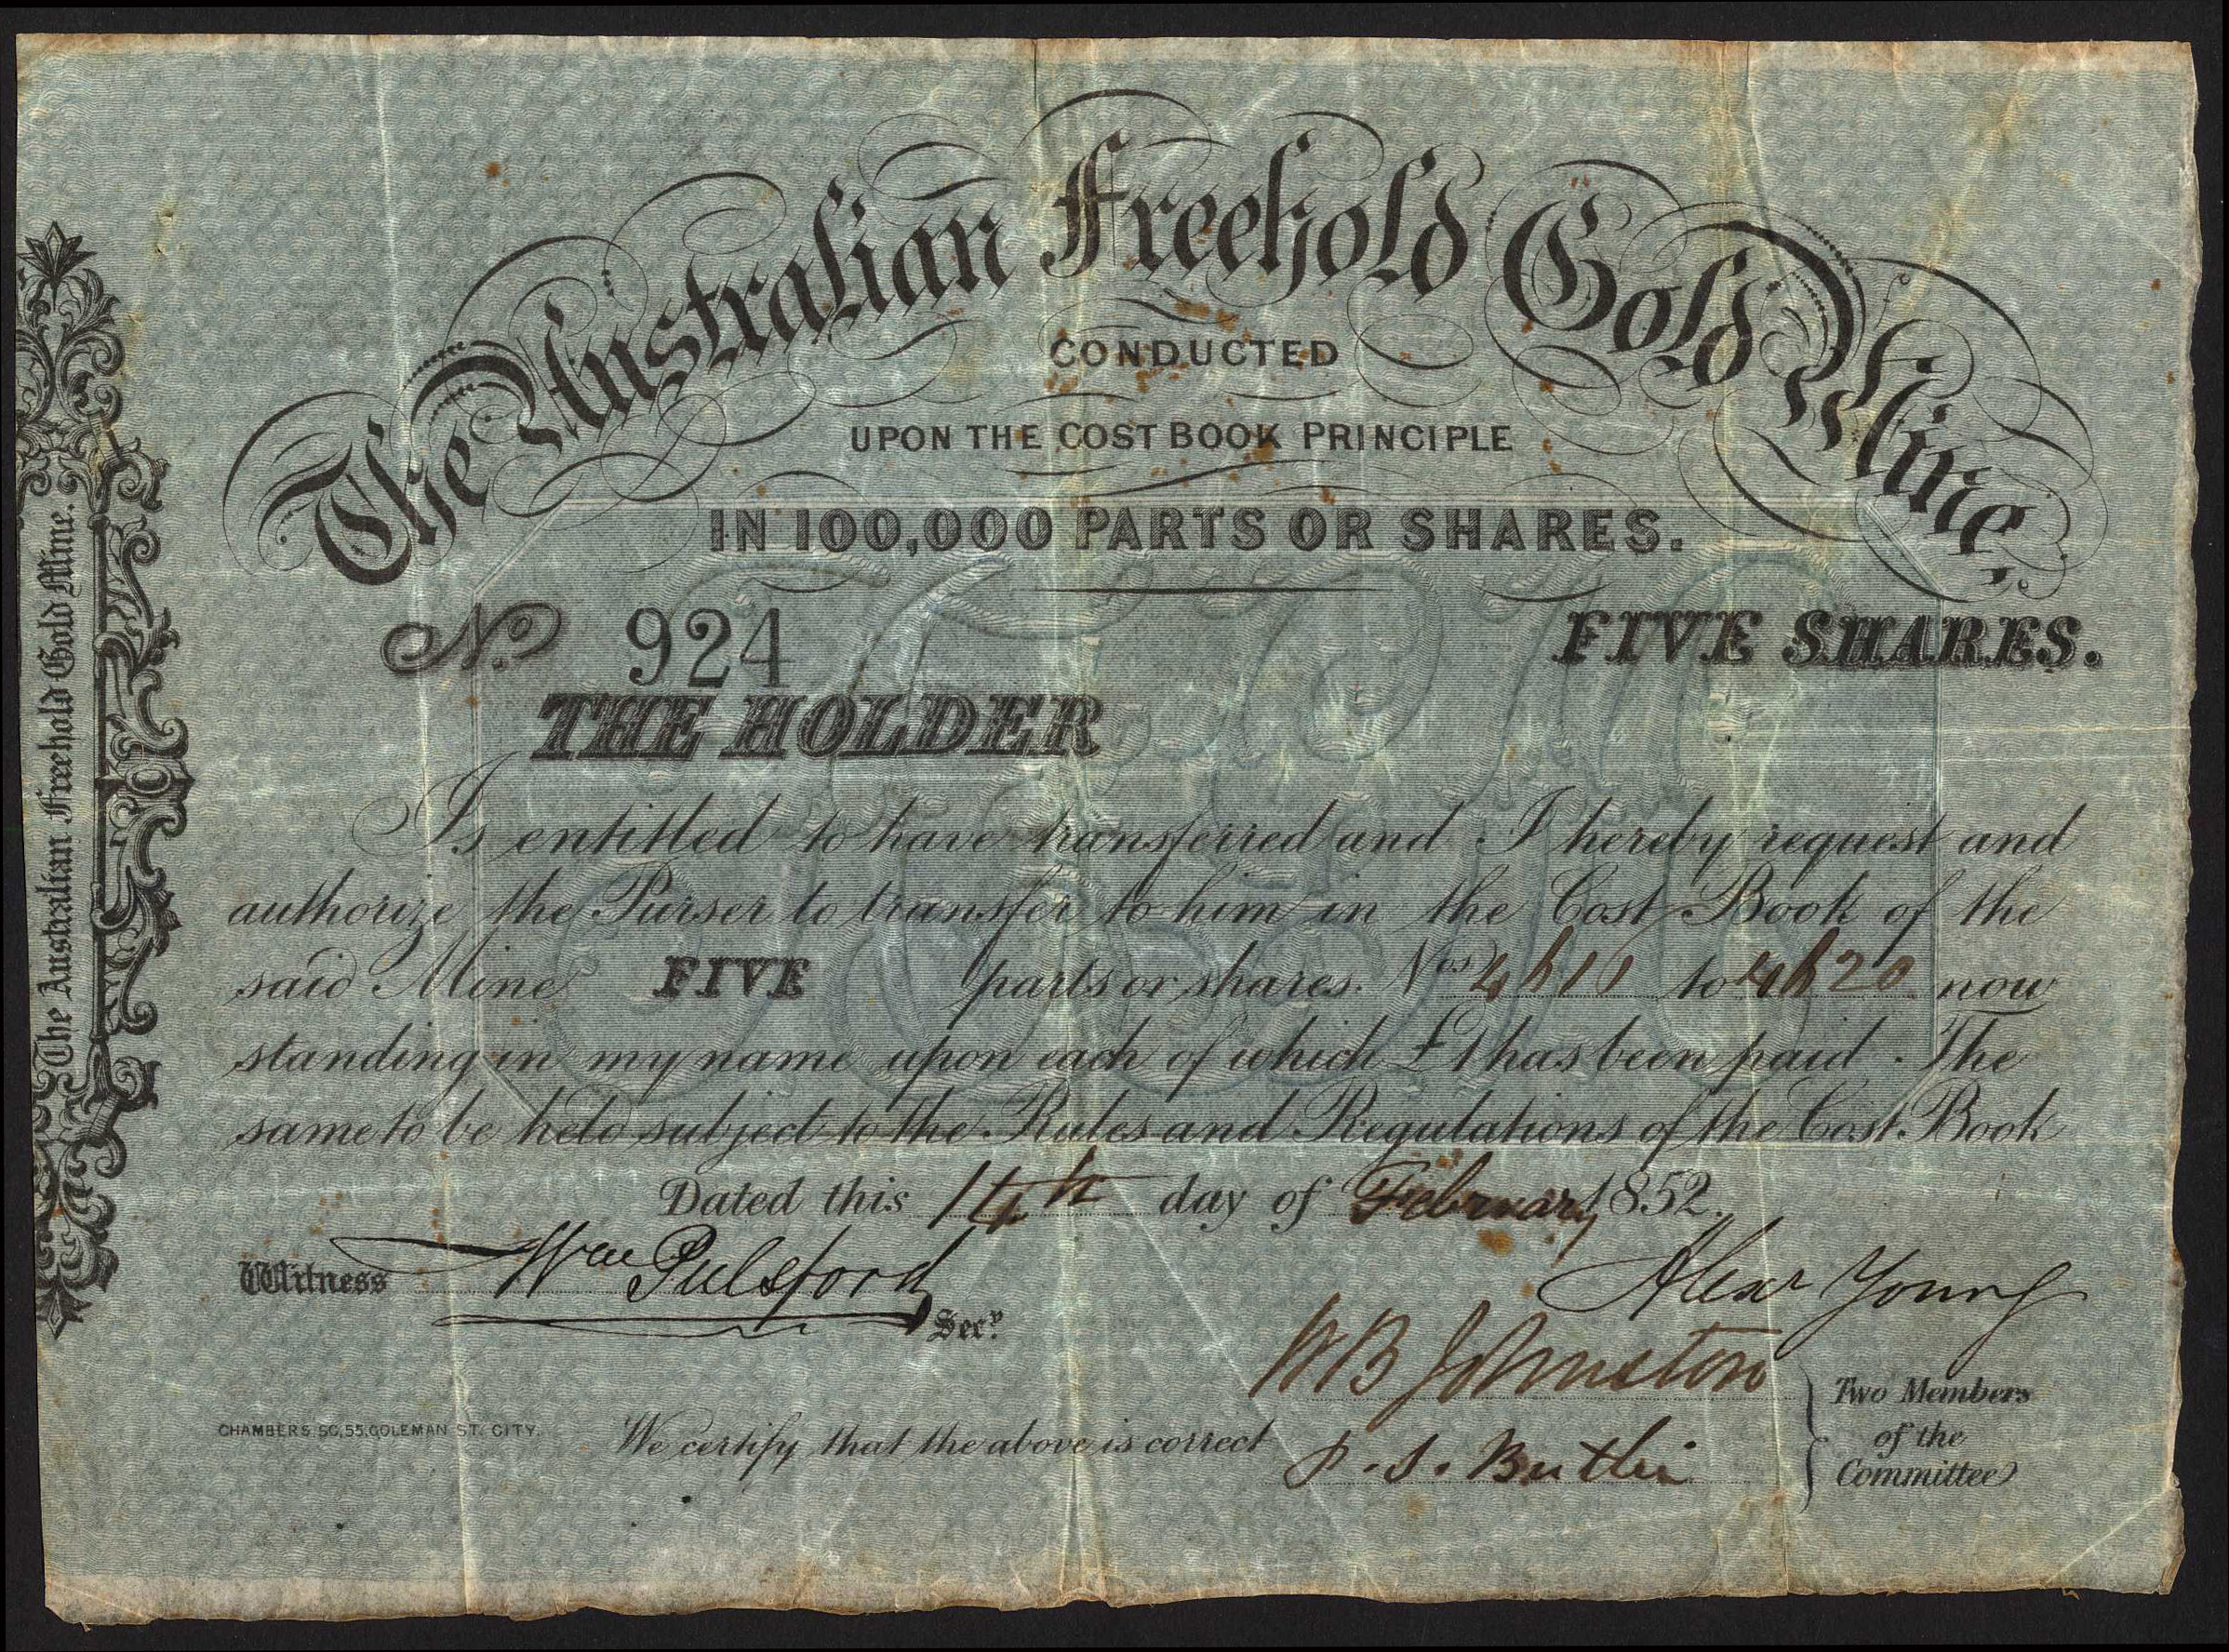 The Australian Freehold Gold Mine,
CONDUCTED
UPON THE COST BOOK PRINCIPLE
IN 100,000 PARTS OR SHARES.
No. 924 FIVE SHARES.
THE HOLDER
Is entitled to have transferred and I hereby request and
authorize the Purser to transfer to him in the Cost Book of the
said Mine FIVE parts or shares. Nos 4616 to 4620 now
standing in my name upon each of which £1 has been paid. The
same to be held subject to the Rules and Regulations of the Cost Book
Dated this 14th day of February 1852.
Witness Wm Pulsford Secy.
Alexr Young
W B Johnston
Two Members
of the
Committee
CHAMBERS SC, 55, COLEMAN ST. CITY.
We certify that the above is correct
The Australian Freehold Gold Mine.